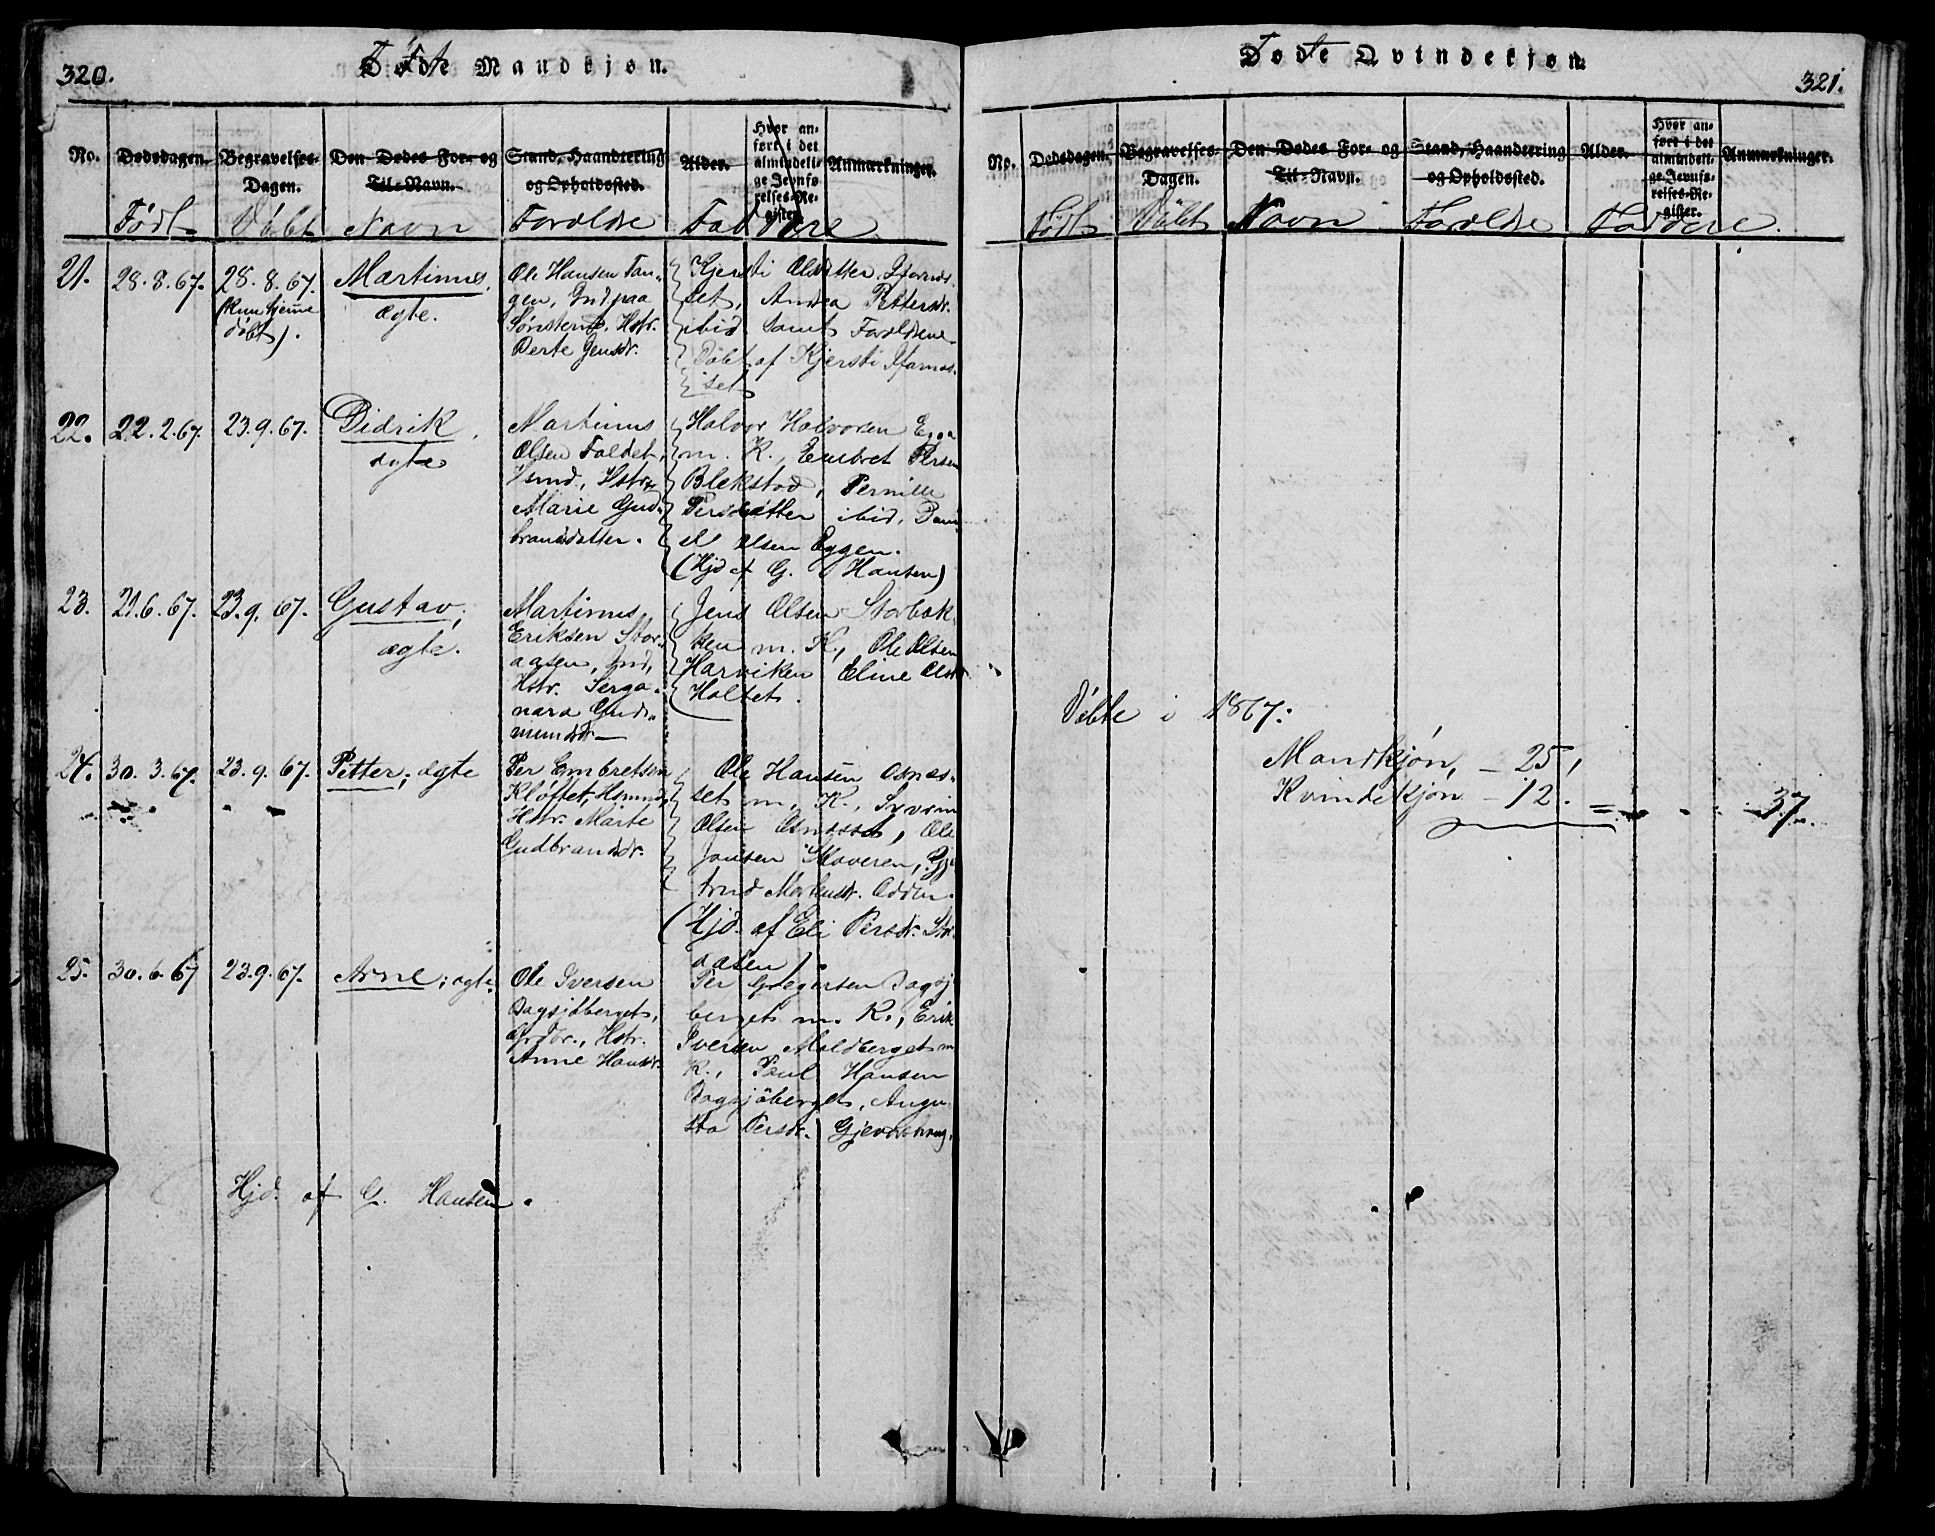 320.
Fødte Mandkjøn.
No.
Dødsdagen.
Begravelses-
Dagen.
Den Dødes For- og
Til-Navn.
Stand, Haandtering
og Opholdssted.
Alder.
Hvor an-
ført i det
almindeli-
ge Jevnfø-
relses-Re-
gister.
Anmærkninger.
Født Døbt Navn Forældre Faddere
21. 28.8.67. 28.8.67.
(kun hjemme
døbt).
Martinus,
ægte.
Ole Hansen Tan-
gen, Ind. paa
Hstr.
Berte Jensdr.
Kjersti Olsdatter
set, Andrea Pettersdr.
ibid. samt Forældrene.
Døbt af Kjersti
set
22. 22.2.67. 23.9.67. Didrik
ægte
Martinus
Olsen Foldet,
Hsmd., Hstr.
Marie Gud-
brandsdatter.
Halvor Halvorsen
m. K., Embret Persen
Blekstad, Pernille
Persdatter ibid,
Olsen Eggen.
(Hjd af G. Hansen)
23. 21.6.67. 23.9.67. Gustav;
ægte.
Martinus
Eriksen Stor-
aasen, Ind,
Hstr. Serga-
nara Gud-
mundsdr.
Jens Olsen Storbæk-
ken m. K., Ole Olsen
Harviken Eline Olsdr
Holtet.
24. 30.3.67. 23.9.67. Petter; ægte
Per Embretsen
Kløftet, Hsmnd,
Hstr. Marte
Gudbrandsdr.
Ole Hansen Osnes-
set m. K., Syverin
Olsen Osnesset, Ole
Jonsen Kloveren, Gjer-
trud Mortensdr. Odden.
(Hjd. af Eli Persdr. Stor-
aasen).
25. 30.6.67 23.9.67. Arne; ægte
Ole Iversen
Dagsjøberget,
Grdbr., Hstr.
Anne Hansdr.
Per Gregersen Dagsj-
berget m. K., Erik
Iversen Moldberget m
K., Paul Hansen
Dagsjøberget, Augu-
sta Persdr.
Hjd. af G. Hansen.
Fødte Qvindekjøn.
321.
No.
Dødsdagen.
Begravelses-
Dagen.
Den Dødes For- og
Til-Navn.
Stand, Haandtering
og Opholdssted.
Alder.
Hvor an-
ført i det
almindeli-
ge Jevnfø-
relses-Re-
gister.
Anmærkninger.
Født Døbt Navn Forældre Faddere.
Døbte i 1867:
Mandkjøn, – 25,
Kvindekjøn – 12. = 37.